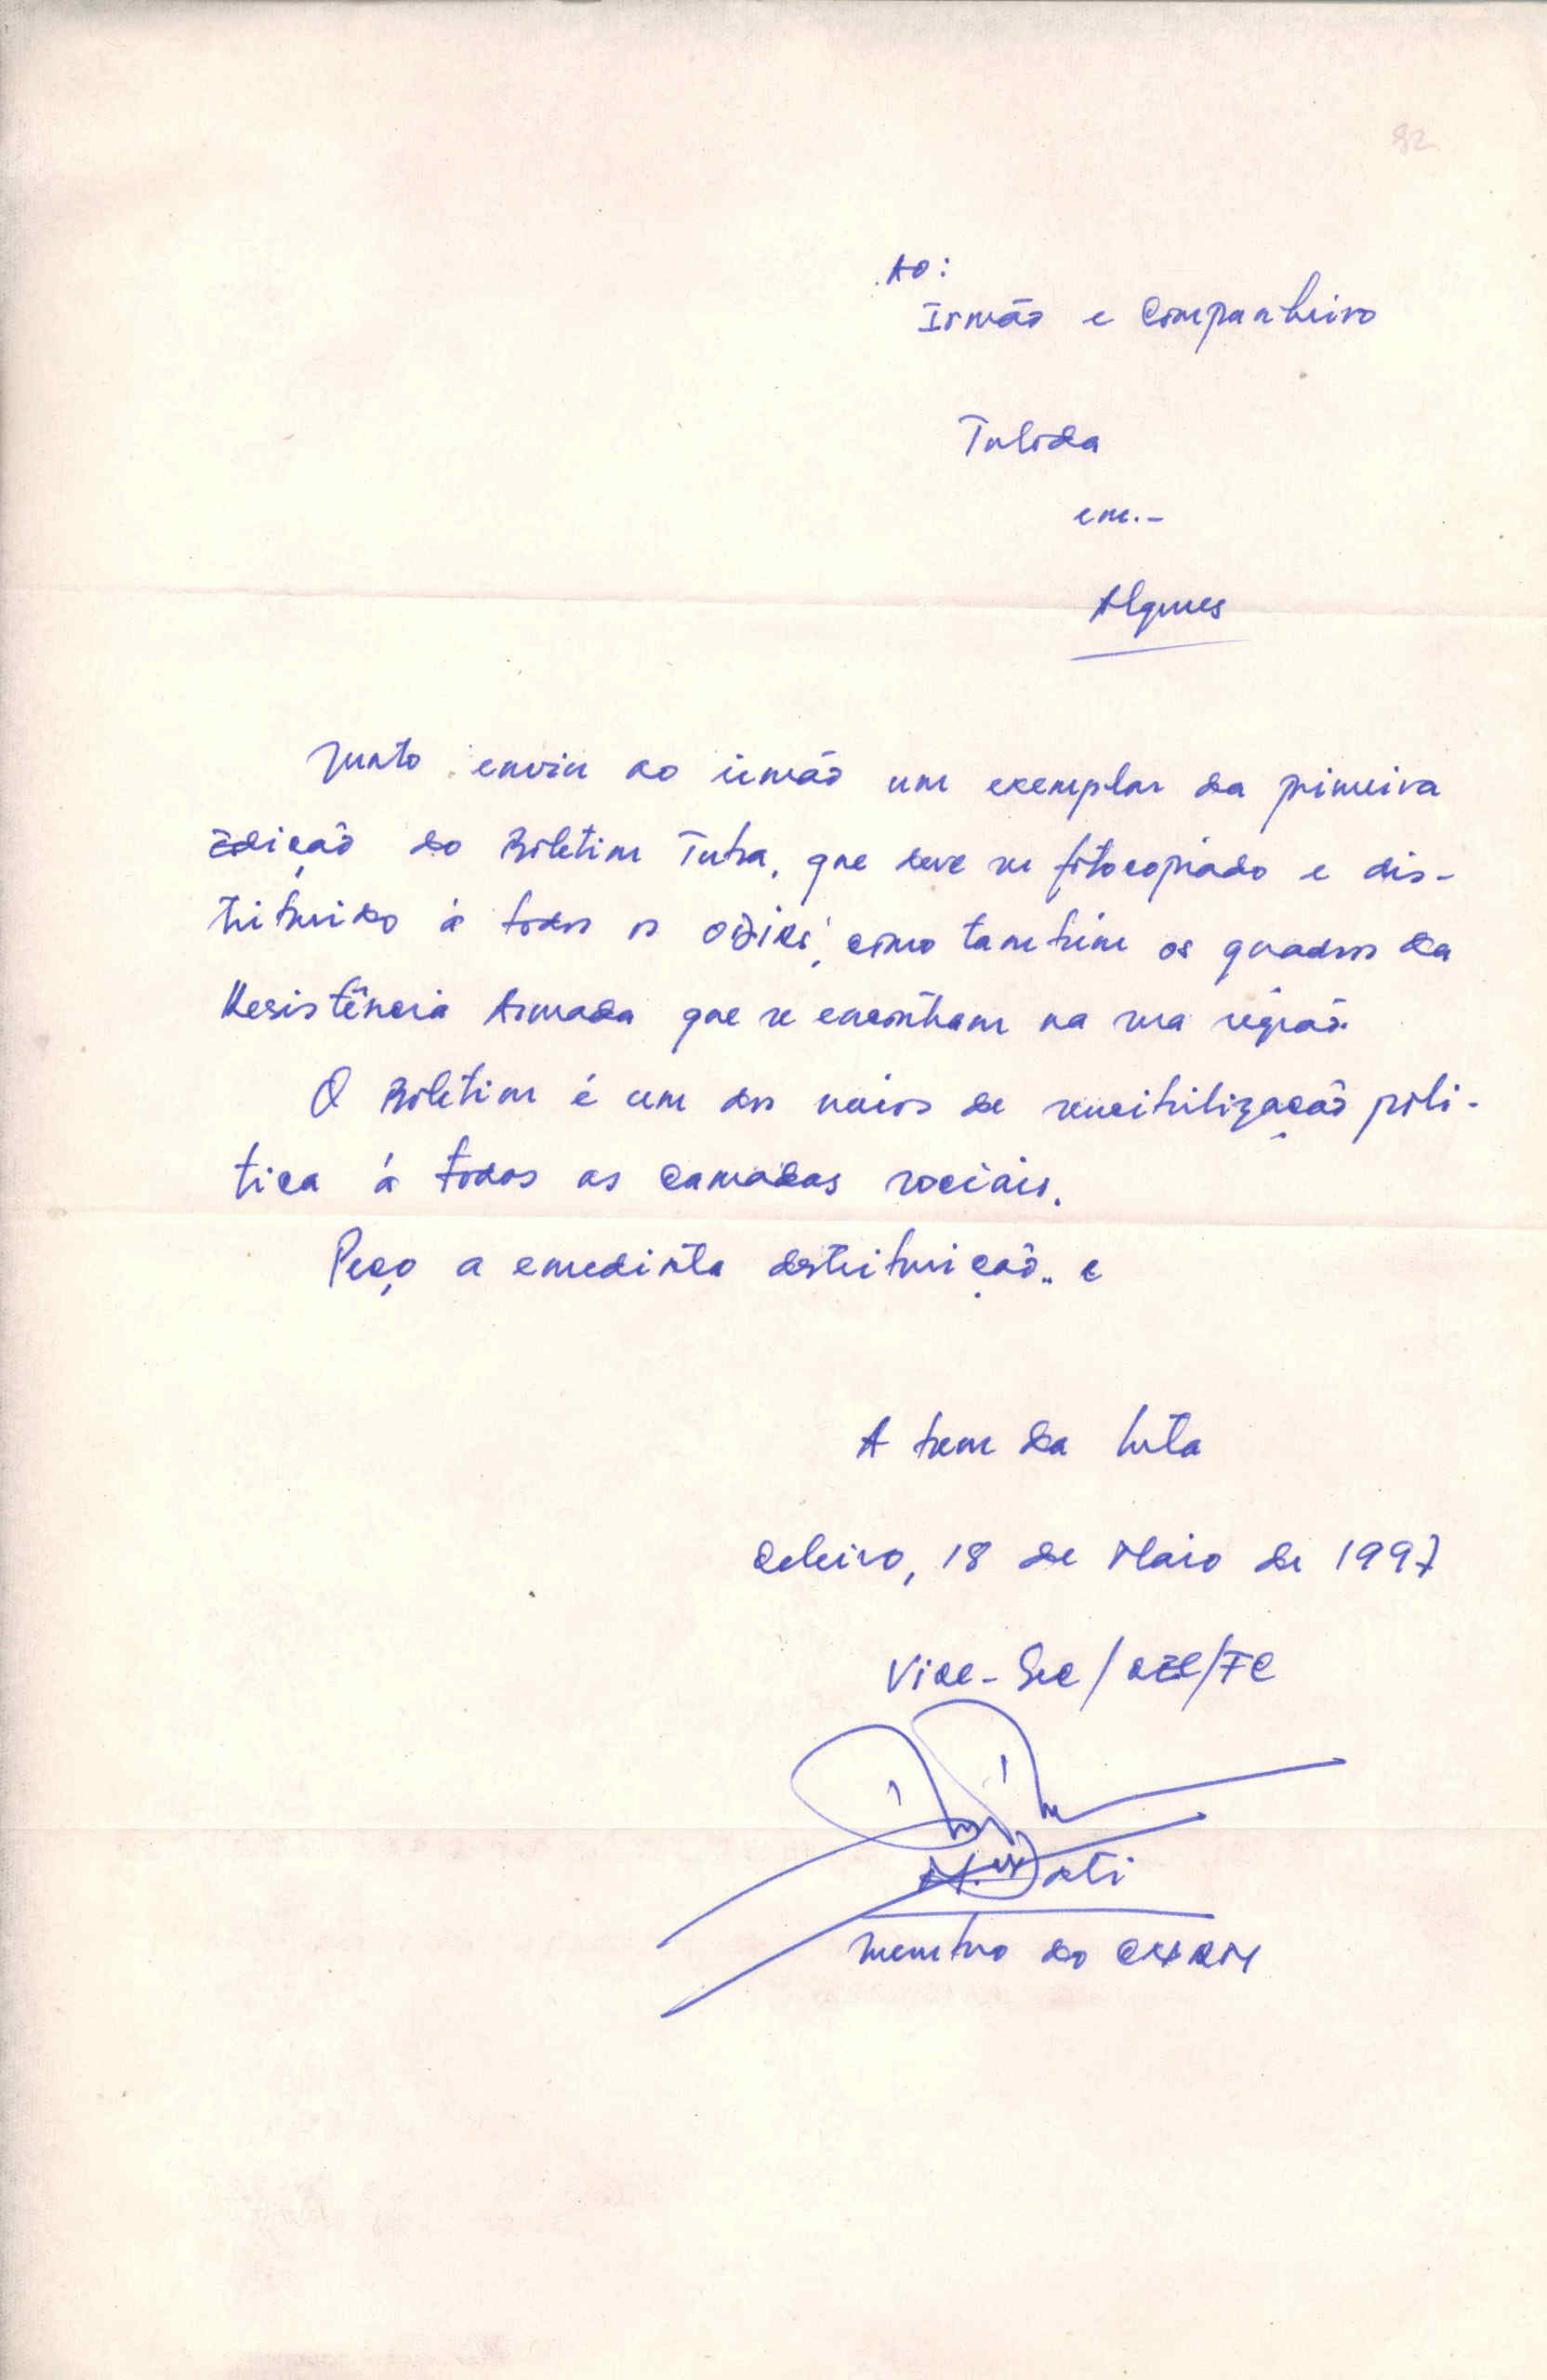 82
AO:
Irmão e Companheiro
Tulida
em.-
Algures
Junto enviu ao irmão um exemplar da primeira
Edição do Boletim Tuba, que deve ser fotocopiado e dis-
tribuido á todos os como também os quadros da
Resistência Armada que se encontram na sua região.
O Boletim é um dos meios de sencibilização poli-
tica á todas as camadas sociais.
Peço a emediata destribuição.. e
A bem da luta
18 de Maio de 1997
Vice-Sec/
Dati
membro do CNRM